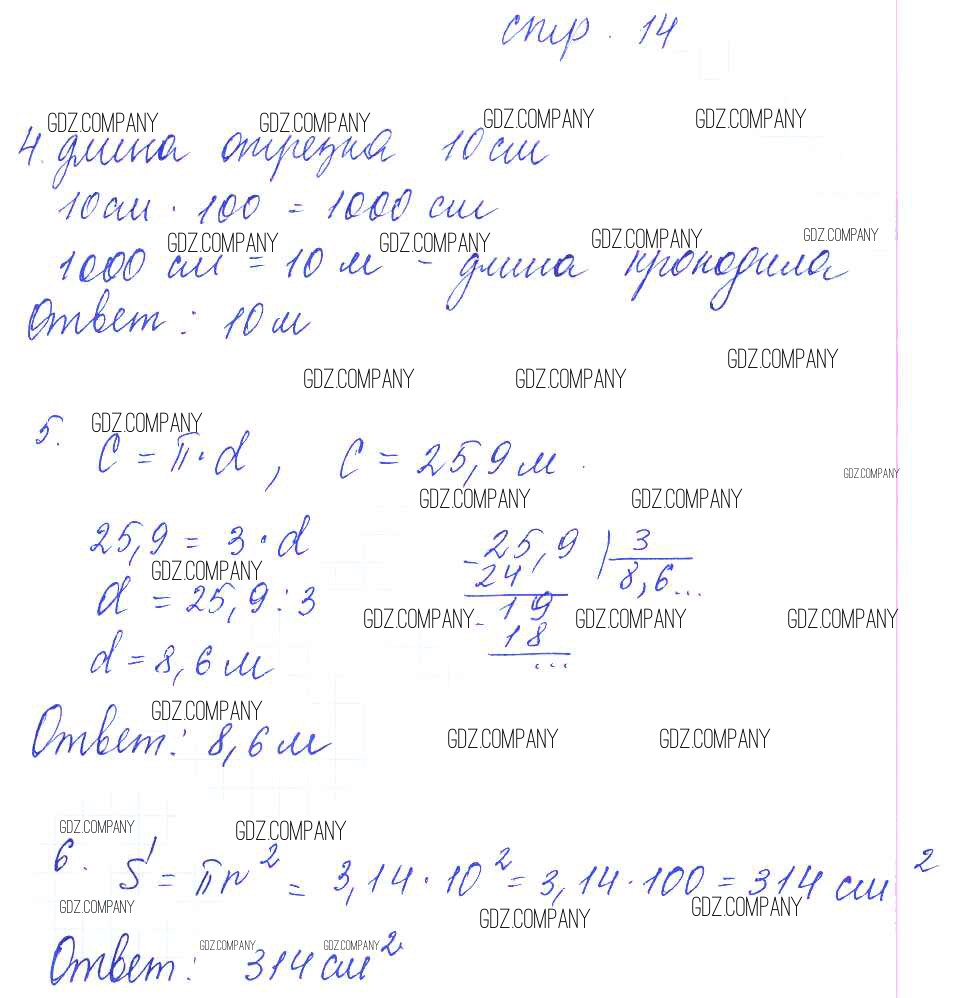 стр. 14
GDZ.COMPANY GDZ.COMPANY GDZ.COMPANY GDZ.COMPANY
4. длина отрезка 10 см
10 см · 100 = 1000 см
GDZ.COMPANY GDZ.COMPANY GDZ.COMPANY GDZ.COMPANY
1000 см = 10 м - длина крокодила
Ответ: 10 м
GDZ.COMPANY GDZ.COMPANY GDZ.COMPANY
GDZ.COMPANY
5. C = π · d, C = 25,9 м
GDZ.COMPANY
GDZ.COMPANY GDZ.COMPANY
25,9 = 3 · d
GDZ.COMPANY
d = 25,9 : 3
d = 8,6 м
- 25,9 | 3
24 8,6...
- 19
18
...
GDZ.COMPANY GDZ.COMPANY GDZ.COMPANY
GDZ.COMPANY
Ответ: 8,6 м
GDZ.COMPANY GDZ.COMPANY
GDZ.COMPANY GDZ.COMPANY
6. S = πr² = 3,14 · 10² = 3,14 · 100 = 314 см²
GDZ.COMPANY GDZ.COMPANY GDZ.COMPANY
GDZ.COMPANY GDZ.COMPANY
Ответ: 314 см²